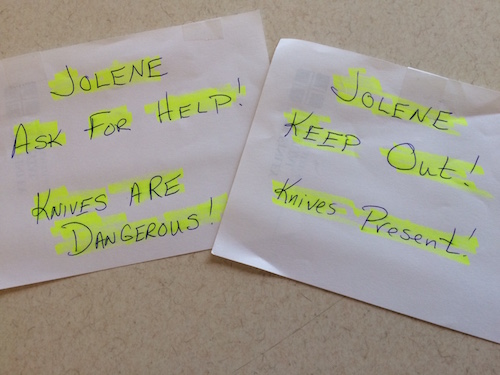 JOLENE
ASK FOR HELP!
KNIVES ARE
DANGEROUS!
JOLENE
KEEP OUT!
Knives Present!